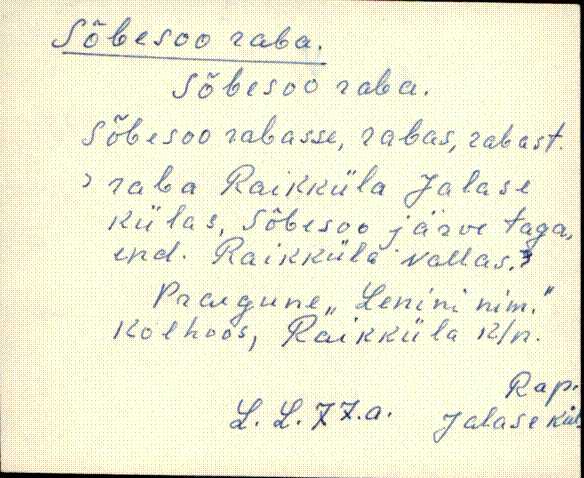 Sõbesoo raba.
Sõbesoo raba.
Sõbesoo rabasse, rabas, rabast.
raba Raikküla Jalase
külas, Sõbesoo järve taga,
end. Raikküla vallas.
Praegune „Lenini nim."
kolhoos, Raikküla k/n.
Rap.
L. L. 77.a. Jalase kül.